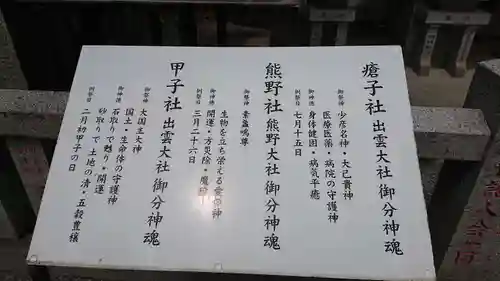 瘡子社 出雲大社 御分神魂
御祭神 少彦名神・大己貴神
医療医薬・病院の守護神
御神徳 身体健固・病気平癒
例祭日 七月十五日
熊野社 熊野大社 御分神魂
御祭神 素盞嗚尊
生物を立ち栄える愛の神
御神徳 開運・方災除・魔除
例祭日 三月二十六日
甲子社 出雲大社 御分神魂
御祭神 大国主大神
国土・生命体の守護神
御神徳 石取りで甦り・開運
砂取りで土地の清・五穀豊穣
例祭日 二月初甲子の日